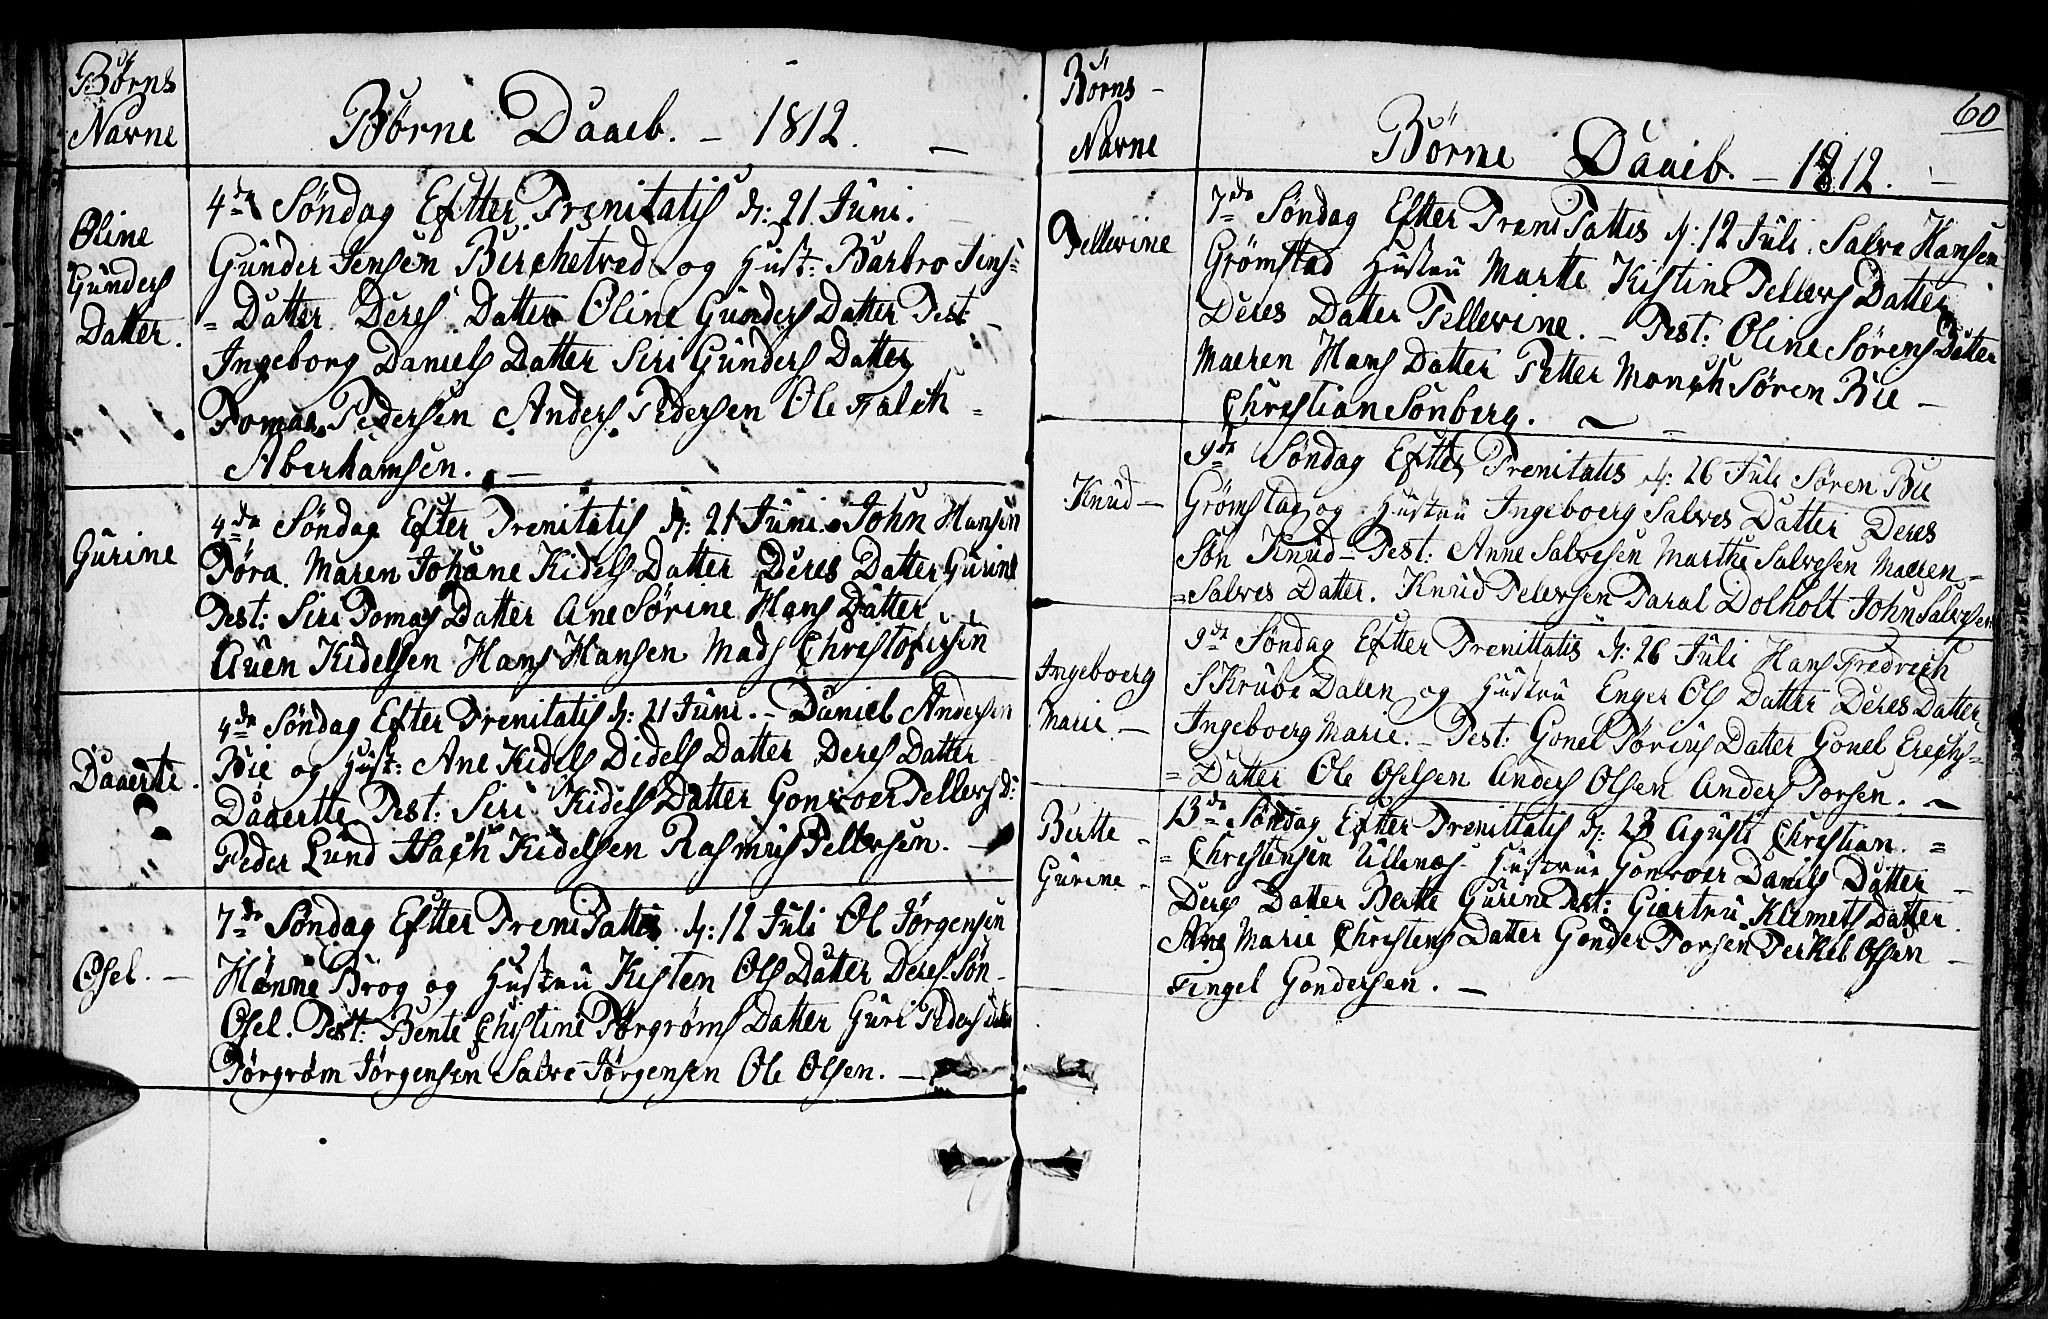 Børns
Navne
Børne Daaeb. – 1812. –
Oline
Gunders
Datter.
4de Søndag Eftter Trenitatis d: 21 Juni.
Gunder Jensen Birchetved og Hust: Barbro Jens=
= Datter Deres Datter Oline Gunders Datter Test
Ingeborg Daniels Datter Siri Gunders Datter
Tomas Pedersen Anders Pedersen Ole Falch =
Aberhamsen. –
Gurine
4de Søndag Efter Trenitatis d: 21 Juni. John Hansen
Tøra. Maren Johane Kidels Datter Deres Datter Gurine
Test: Siri Tomas Datter Ane Sørine Hans Datter
Auen Kidelsen Hans Hansen Mads Christofersen
Daaerte.
4de Søndag Efter Trenitatis d: 21 Juni. – Daniel Andersen
Bie og Hust: Ane Kidels Didels Datter Deres Datter
Daaertte Test: Siri Kidels Datter Gonvoer Tellevs D:
Peder Lund Isach Kidelsen Rasmus Tellevsen. –
Osel. –
7de Søndag Eftter Treni Tattis d: 12 Juli Ol Jørgensen
Hønne Brog og Hustru Kisten Ols Datter Deres Søn –
Osel. Test: Bente Christine Torgrøms Datter Guri Peders Datter
Tørgrøm Jørgensen Salve Jørgensen Ole Olsen. –
Børns –
Navne
60
Børne Daaeb. – 1812. –
Tellevine
7de Søndag Efter Treni Tattis d: 12 Juli. Salve Hansen
Grømstad Hustru Martte Kistine Tellevs Datter
Deres Datter Tellevine. – Test: Oline Sørens Datter
Maeren Hans Datter Petter Monch Søren Bie –
Christian Sonberg. –
Knud –
9de Søndag Eftter Trenitatis d: 26 Juli Søren Bie
Grømstad og Hustru Ingeboerg Salves Datter Deres
Søn Knud – Test: Anne Salvesen Marthe Salvesen Maeren –
= Salves Datter. Knud Televsen Taral Dolholt John Salvesen
Ingeboerg
Marie. –
9de Søndag Eftter Trenittatis d: 26 Juli Hans Fredrich
Skrube Dalen og Hustru Enger Ols Datter Deres Datter
Ingeboerg Marie. – Test: Gonel Tørius Datter Gonel Erechs=
= Datter Ole Oselsen Anders Olsen Anders Torsen. –
Bertte –
Gurine –
13de Søndag Efter Trenittatis d: 23 Agusti Christian. =
= Christensen Ullenæs Hustrue Gonvoer Daniels Datter –
Deres Datter Bertte Gurine Test: Giertru Klemets Datter.
Ane Marie Christens Datter Gonder Torsen Terkel Olsen –
Fingel Gondersen. –